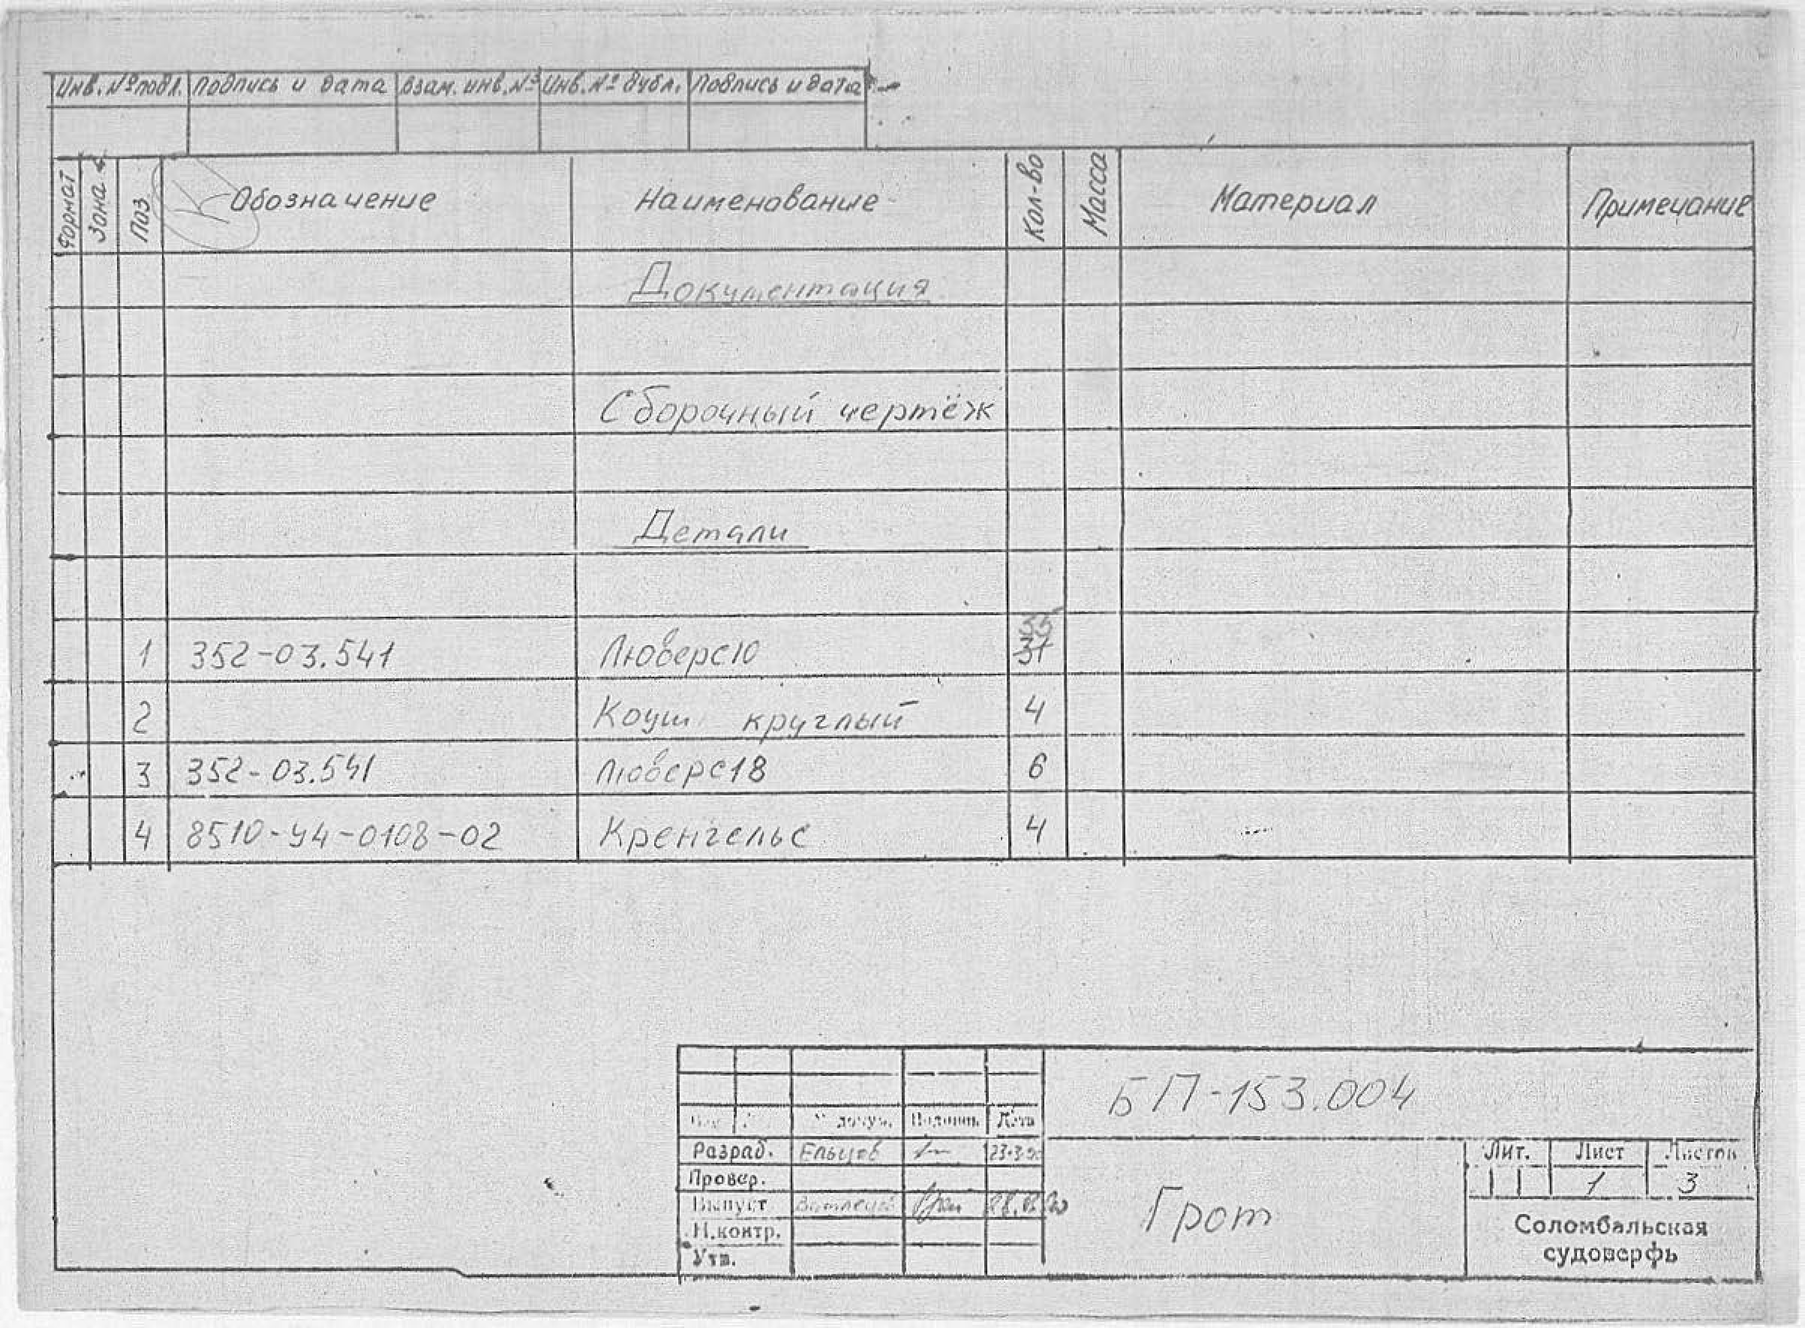 Инв. № подл. Подпись и дата Взам. инв. № Инв. № дубл. Подпись и дата
Формат Зона Поз Обозначение Наименование Кол-во Масса Материал Примечание
Документация
Сборочный чертёж
Детали
1 352-03.541 Люверс10 35 31
2 Коуш круглый 4
3 352-03.541 Люверс18 6
4 8510-У4-0108-02 Кренгельс 4
БП-153.004
докум. Подпись Дата
Разраб. Ельцов
Провер.
Выпуст
Н.контр.
Утв.
Грот
Лит. Лист Листов
1 3
Соломбальская
судоверфь